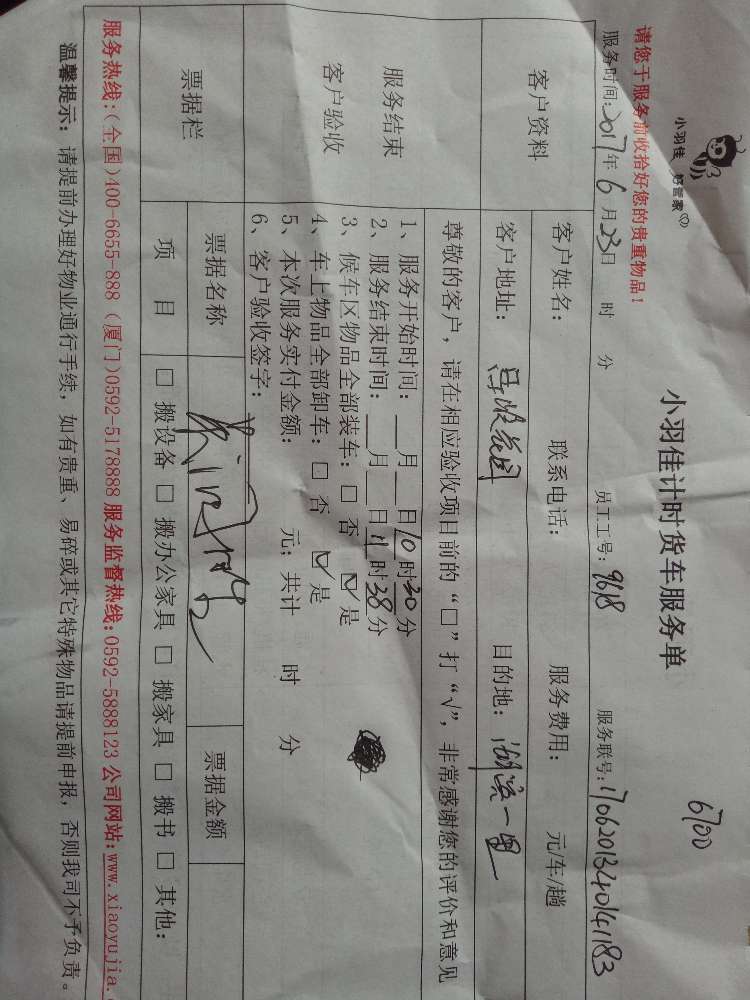 6700
小羽佳 好管家
小羽佳计时货车服务单
请您于服务前收拾好您的贵重物品！
服务时间：2017年6月23日 时 分 员工工号：9618 服务联号：170620134014183
客户资料
客户姓名： 联系电话： 服务费用： 元/车/趟
客户地址： 目的地：
服务结束
客户验收
尊敬的客户，请在相应验收项目前的“□”打“√”，非常感谢您的评价和意见
1、服务开始时间：__月__日10时30分
2、服务结束时间：__月__日11时38分
3、候车区物品全部装车：□ 否 ☑ 是
4、车上物品全部卸车：□ 否 ☑ 是
5、本次服务实付金额： 元；共计 时 分
6、客户验收签字：
票据栏
票据名称 票据金额
项 目 □ 搬设备 □ 搬办公家具 □ 搬家具 □ 搬书 □ 其他：
服务热线：(全国)400-6655-888 (厦门)0592-5178888 服务监督热线：0592-5888123 公司网站：www.xiaoyujia.
温馨提示：请提前办理好物业通行手续，如有贵重、易碎或其它特殊物品请提前申报，否则我司不予负责。